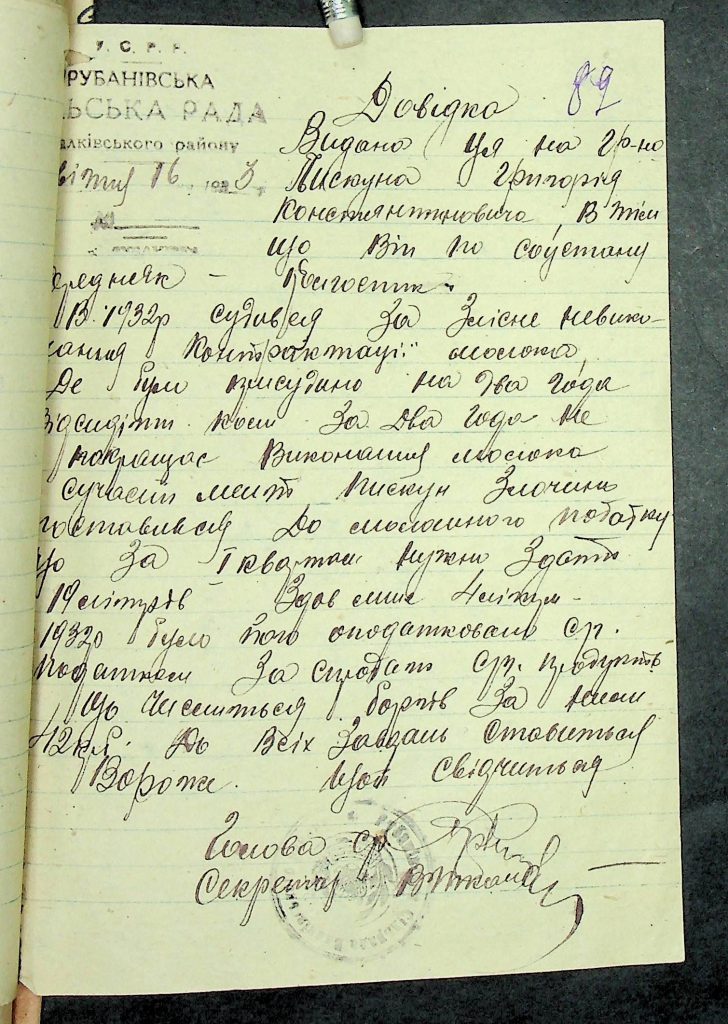 У. С. Р. Р.
РУБАНІВСЬКА
ЛЬСЬКА РАДА
алківського району
16
Довідка
89
Видана ця на гр-на
Пискуна Григорія
Константиновича, в тім
що він по соцстану
середняк -
В 1932р судився за злісне невико-
нання контрактації молока,
де було присудино на два года
відсидіти. коли за два года не
покращає виконання молока
сучасни мент Пискун злочинно
поставився до молошного податку
що за I квартал нужно здати
19 літрів здав лише 4 літри -
1932р було його оподатковано ср.
податком за продаж ср. продуктів
що числиться боргів за ним
42 крб. до всіх завдань ставиться
вороже. що й свідчиться
Голова ср
Секретар